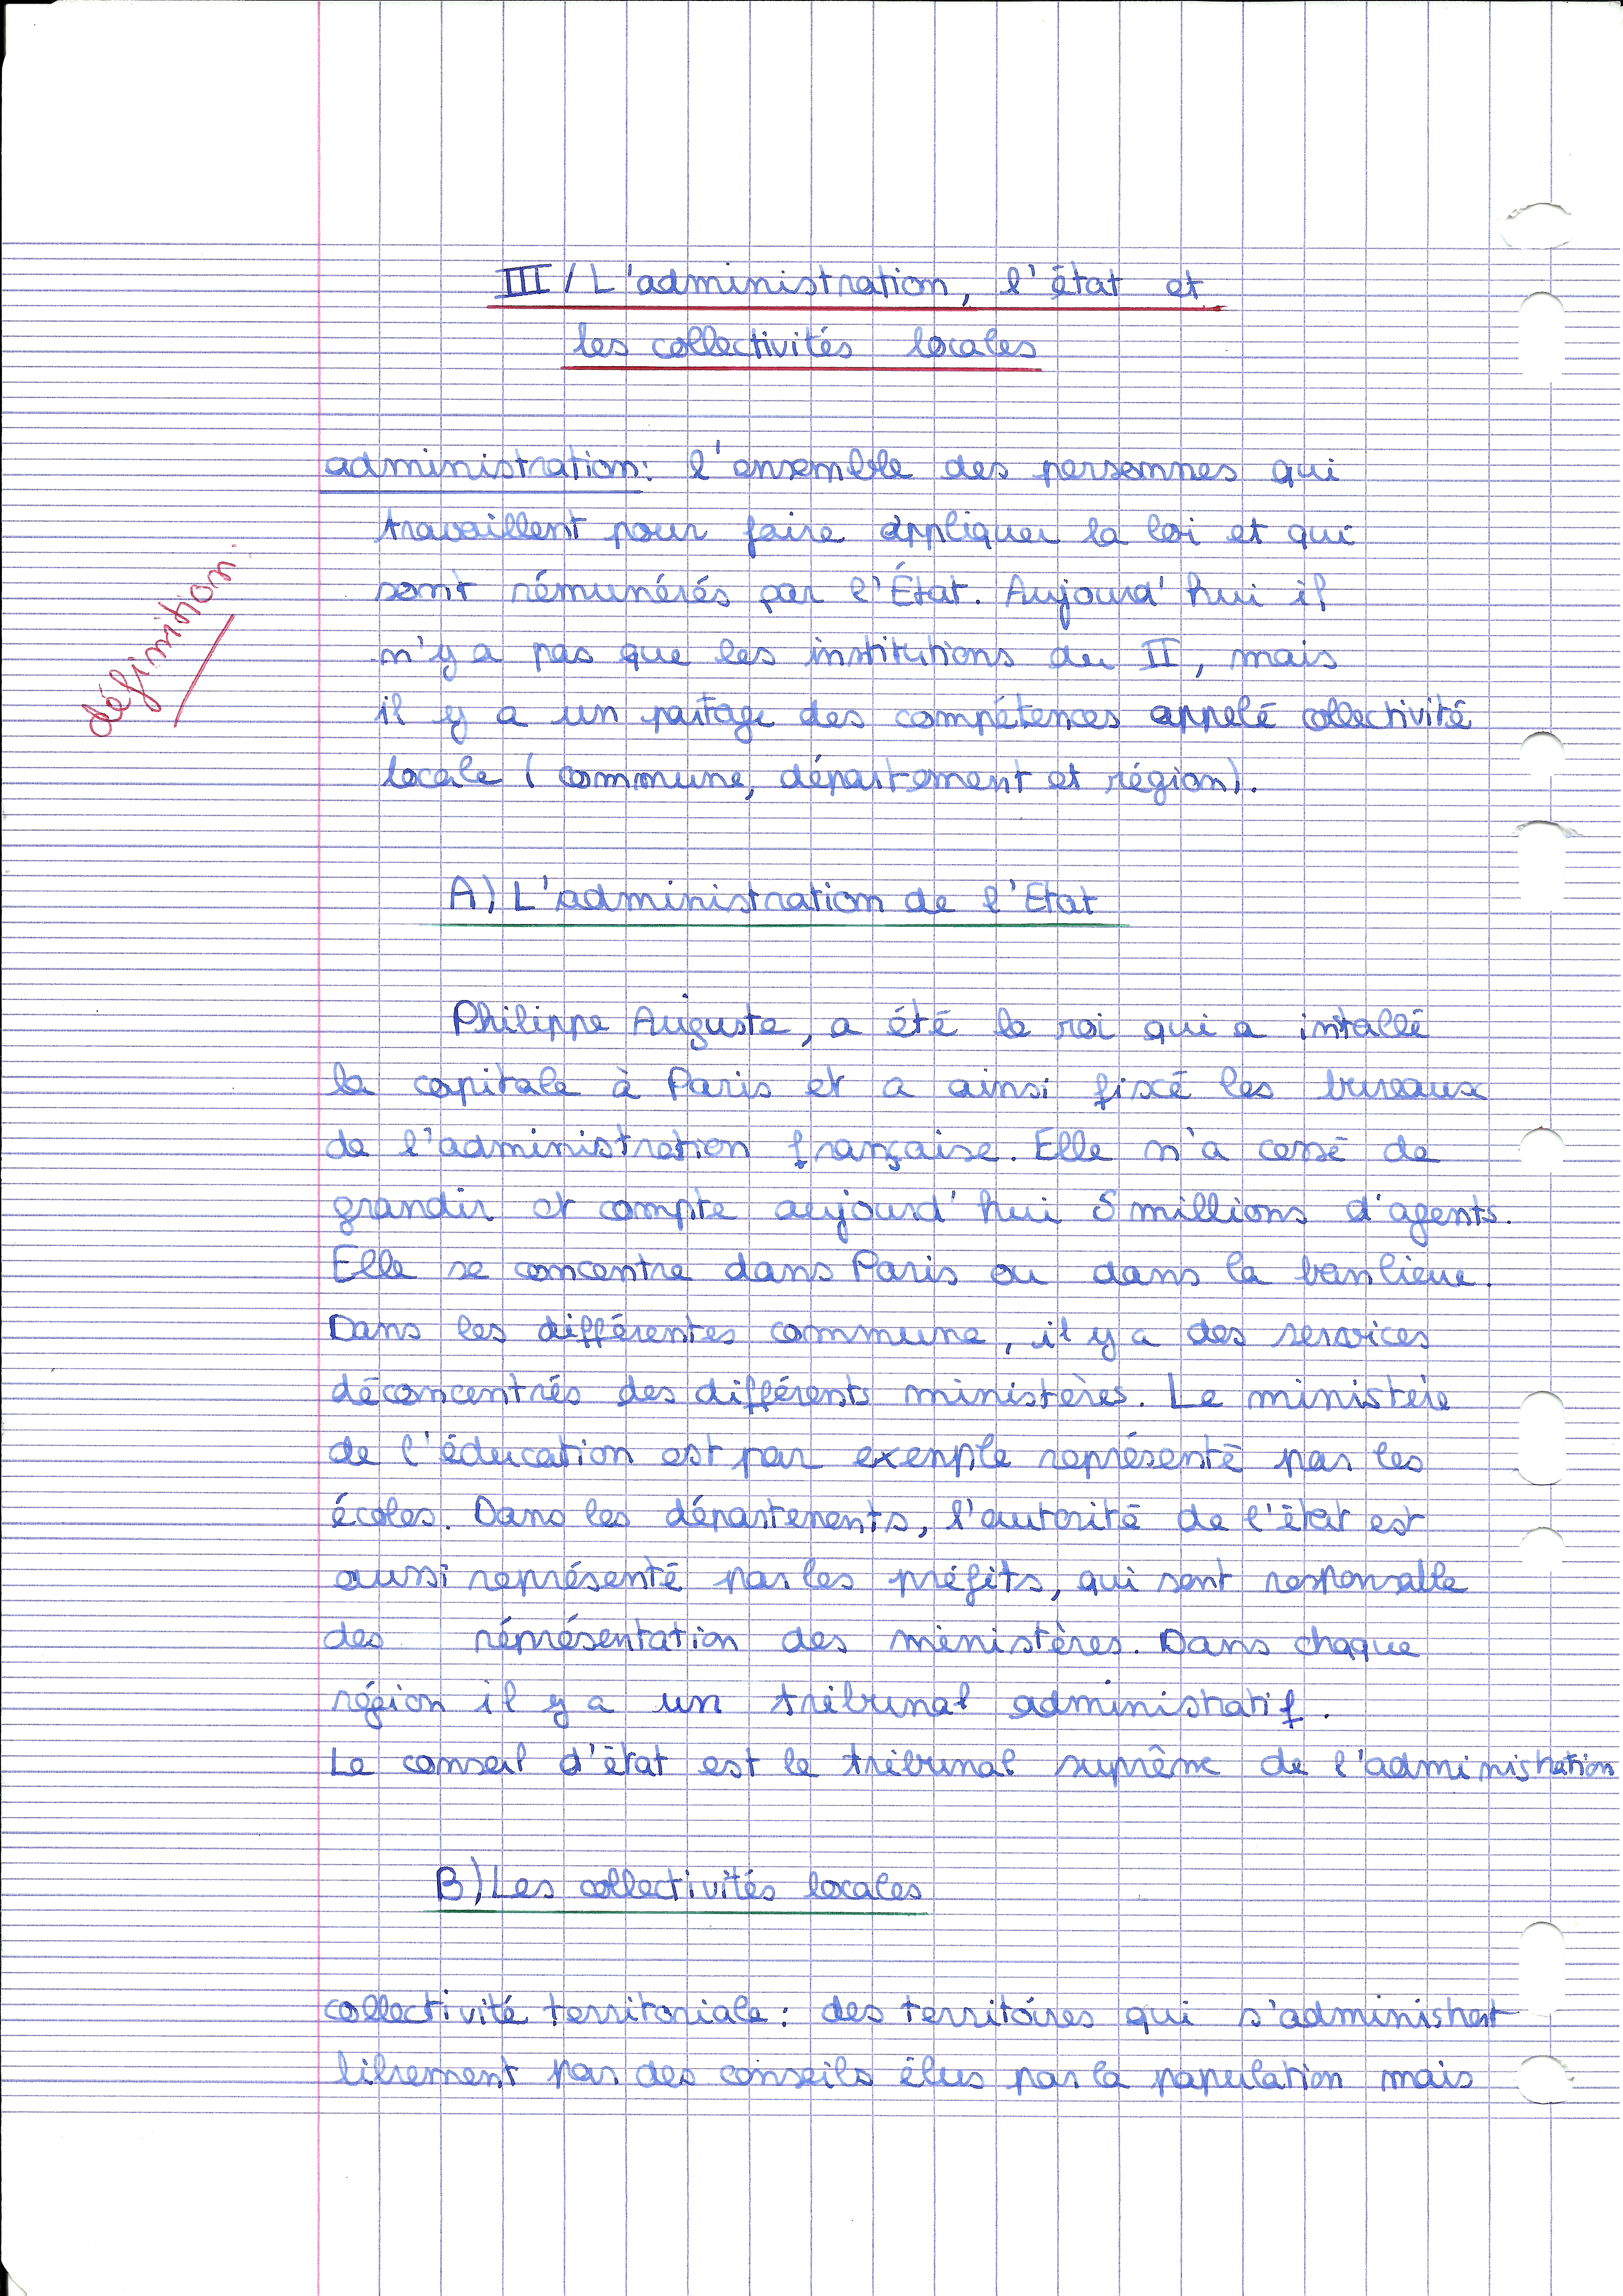 III / L'administration, l'état et
les collectivités locales
administration: l'ensemble des personnes qui
travaillent pour faire appliquer la loi et qui
définition
sont rémunérés par l'État. Aujourd'hui il
n'y a pas que les institutions du II, mais
il y a un partage des compétences appelé collectivité
locale (commune, département et région).
A) L'administration de l'Etat
Philippe Auguste, a été le roi qui a intallé
la capitale à Paris et a ainsi fixé les bureaux
de l'administration française. Elle n'a cessé de
grandir et compte aujourd'hui 5 millions d'agents.
Elle se concentre dans Paris ou dans la banlieue.
Dans les différentes commune, il y a des services
déconcentrés des différents ministères. Le ministère
de l'éducation est par exenple représenté par les
écoles. Dans les départements, l'autorité de l'état est
aussi représenté par les préfits, qui sont responsable
des réprésentation des ministères. Dans chaque
région il y a un tribunal administratif.
Le conseil d'état est le tribunal suprême de l'administration
B) Les collectivités locales
collectivité territoriale: des territoires qui s'administrent
librement par des conseils élus par la population mais